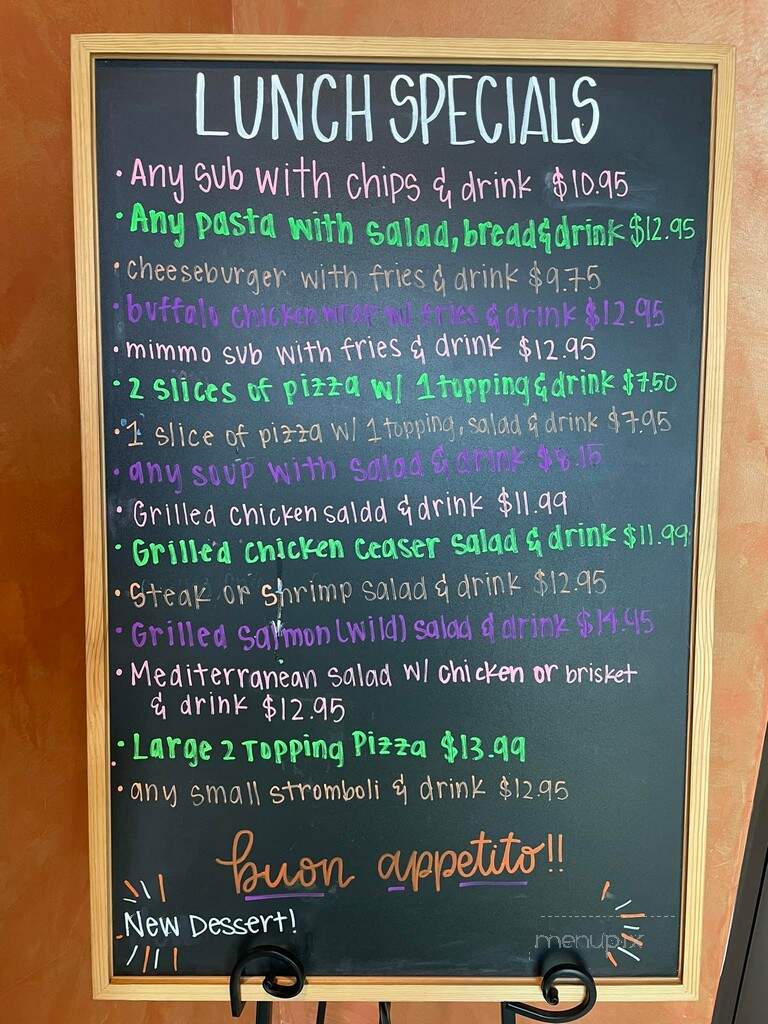 LUNCH SPECIALS
• Any sub with chips & drink $10.95
• Any pasta with salad, bread & drink $12.95
• cheeseburger with fries & drink $9.75
• buffalo chicken wrap w/ fries & drink $12.95
• mimmo sub with fries & drink $12.95
• 2 slices of pizza w/ 1 topping & drink $7.50
• 1 slice of pizza w/ 1 topping, salad & drink $7.95
• any soup with salad & drink $8.15
• Grilled chicken saldd & drink $11.99
• Grilled chicken ceaser salad & drink $11.99
• Steak or shrimp salad & drink $12.95
• Grilled Salmon (wild) salad & drink $14.45
• Mediterranean salad w/ chicken or brisket
& drink $12.95
• Large 2 Topping Pizza $13.99
• any small stromboli & drink $12.95
buon appetito!!
New Dessert!
menupix